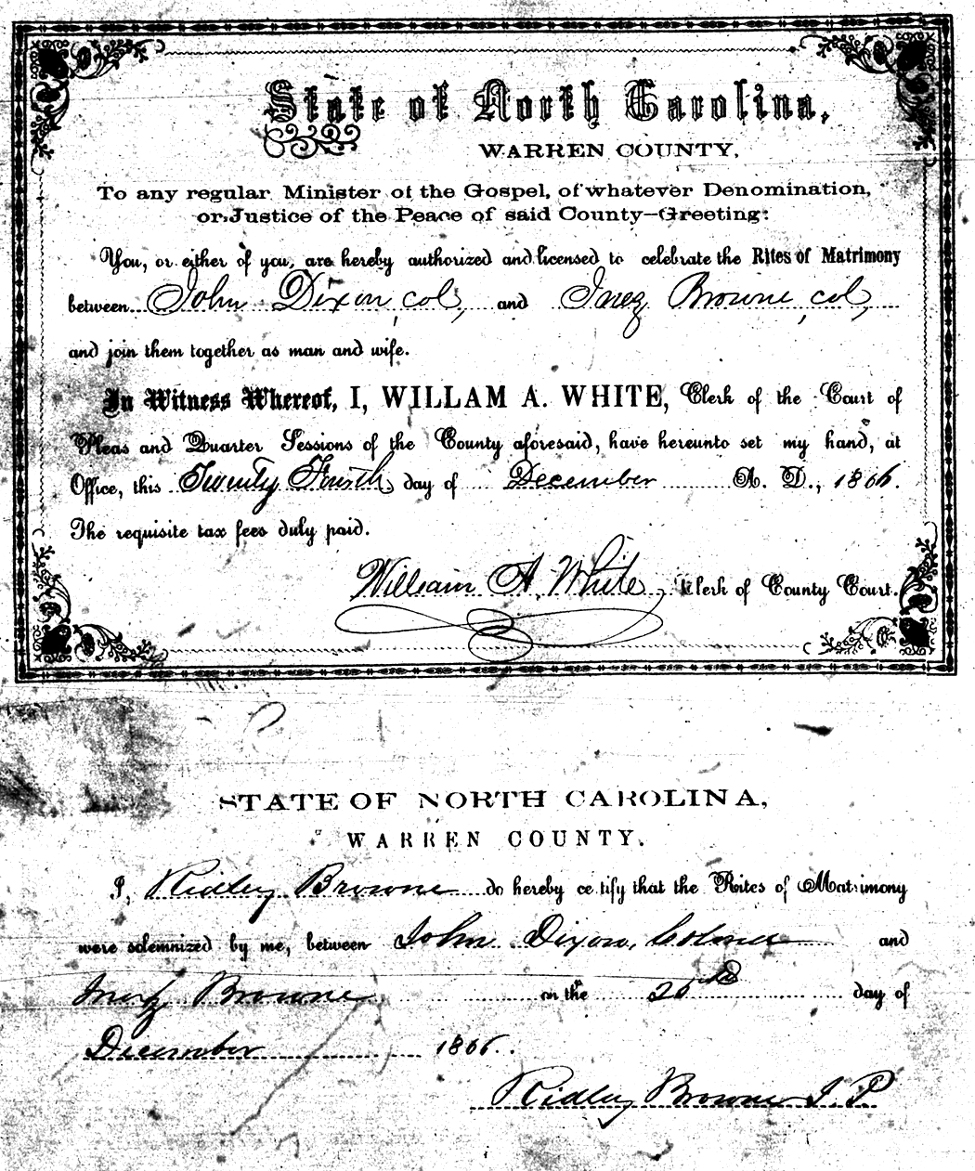 State of North Carolina,
WARREN COUNTY,
To any regular Minister of the Gospel, of whatever Denomination,
or Justice of the Peace of said County—Greeting:
You, or either of you, are hereby authorized and licensed to celebrate the Rites of Matrimony
between John Dixon, col, and Inez Browne, col,
and join them together as man and wife.
In Witness Whereof, I, WILLAM A. WHITE, Clerk of the Court of
Pleas and Quarter Sessions of the County aforesaid, have hereunto set my hand, at
Office, this Twenty Fourth day of December A. D., 1866.
The requisite tax fees duly paid.
William A. White, Clerk of County Court.
STATE OF NORTH CAROLINA,
WARREN COUNTY.
I, Ridley Browne do hereby certify that the Rites of Matrimony
were solemnized by me, between John Dixon, and
Browne on the 25th day of
December 1866.
Ridley Browne J. P.